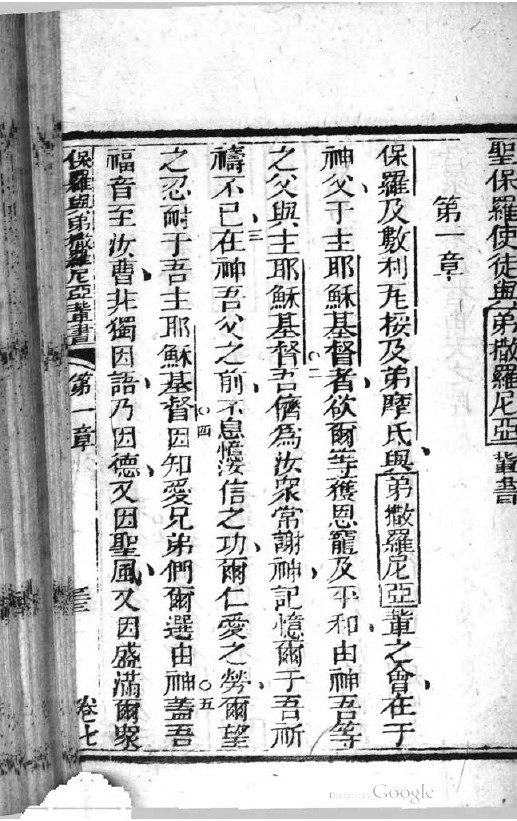 聖保羅使徒與弟撒羅尼亞輩書
第一章
保羅及數利瓦桵及弟摩氏與弟撒羅尼亞輩之會在于
神父于主耶穌基督者欲爾等獲恩寵及平和由神吾等
之父與主耶穌基督○二吾儕為汝眾常謝神記憶爾于吾祈
禱不已○三在神吾父之前不息憶汝信之功爾仁愛之勞爾望
之忍耐于吾主耶穌基督○四因知愛兄弟們爾選由神○五蓋吾
福音至汝曹非獨因語乃因德又因聖風又因盛滿爾眾
保羅與弟撒羅尼亞輩書 第一章 卷七
Digitized by Google